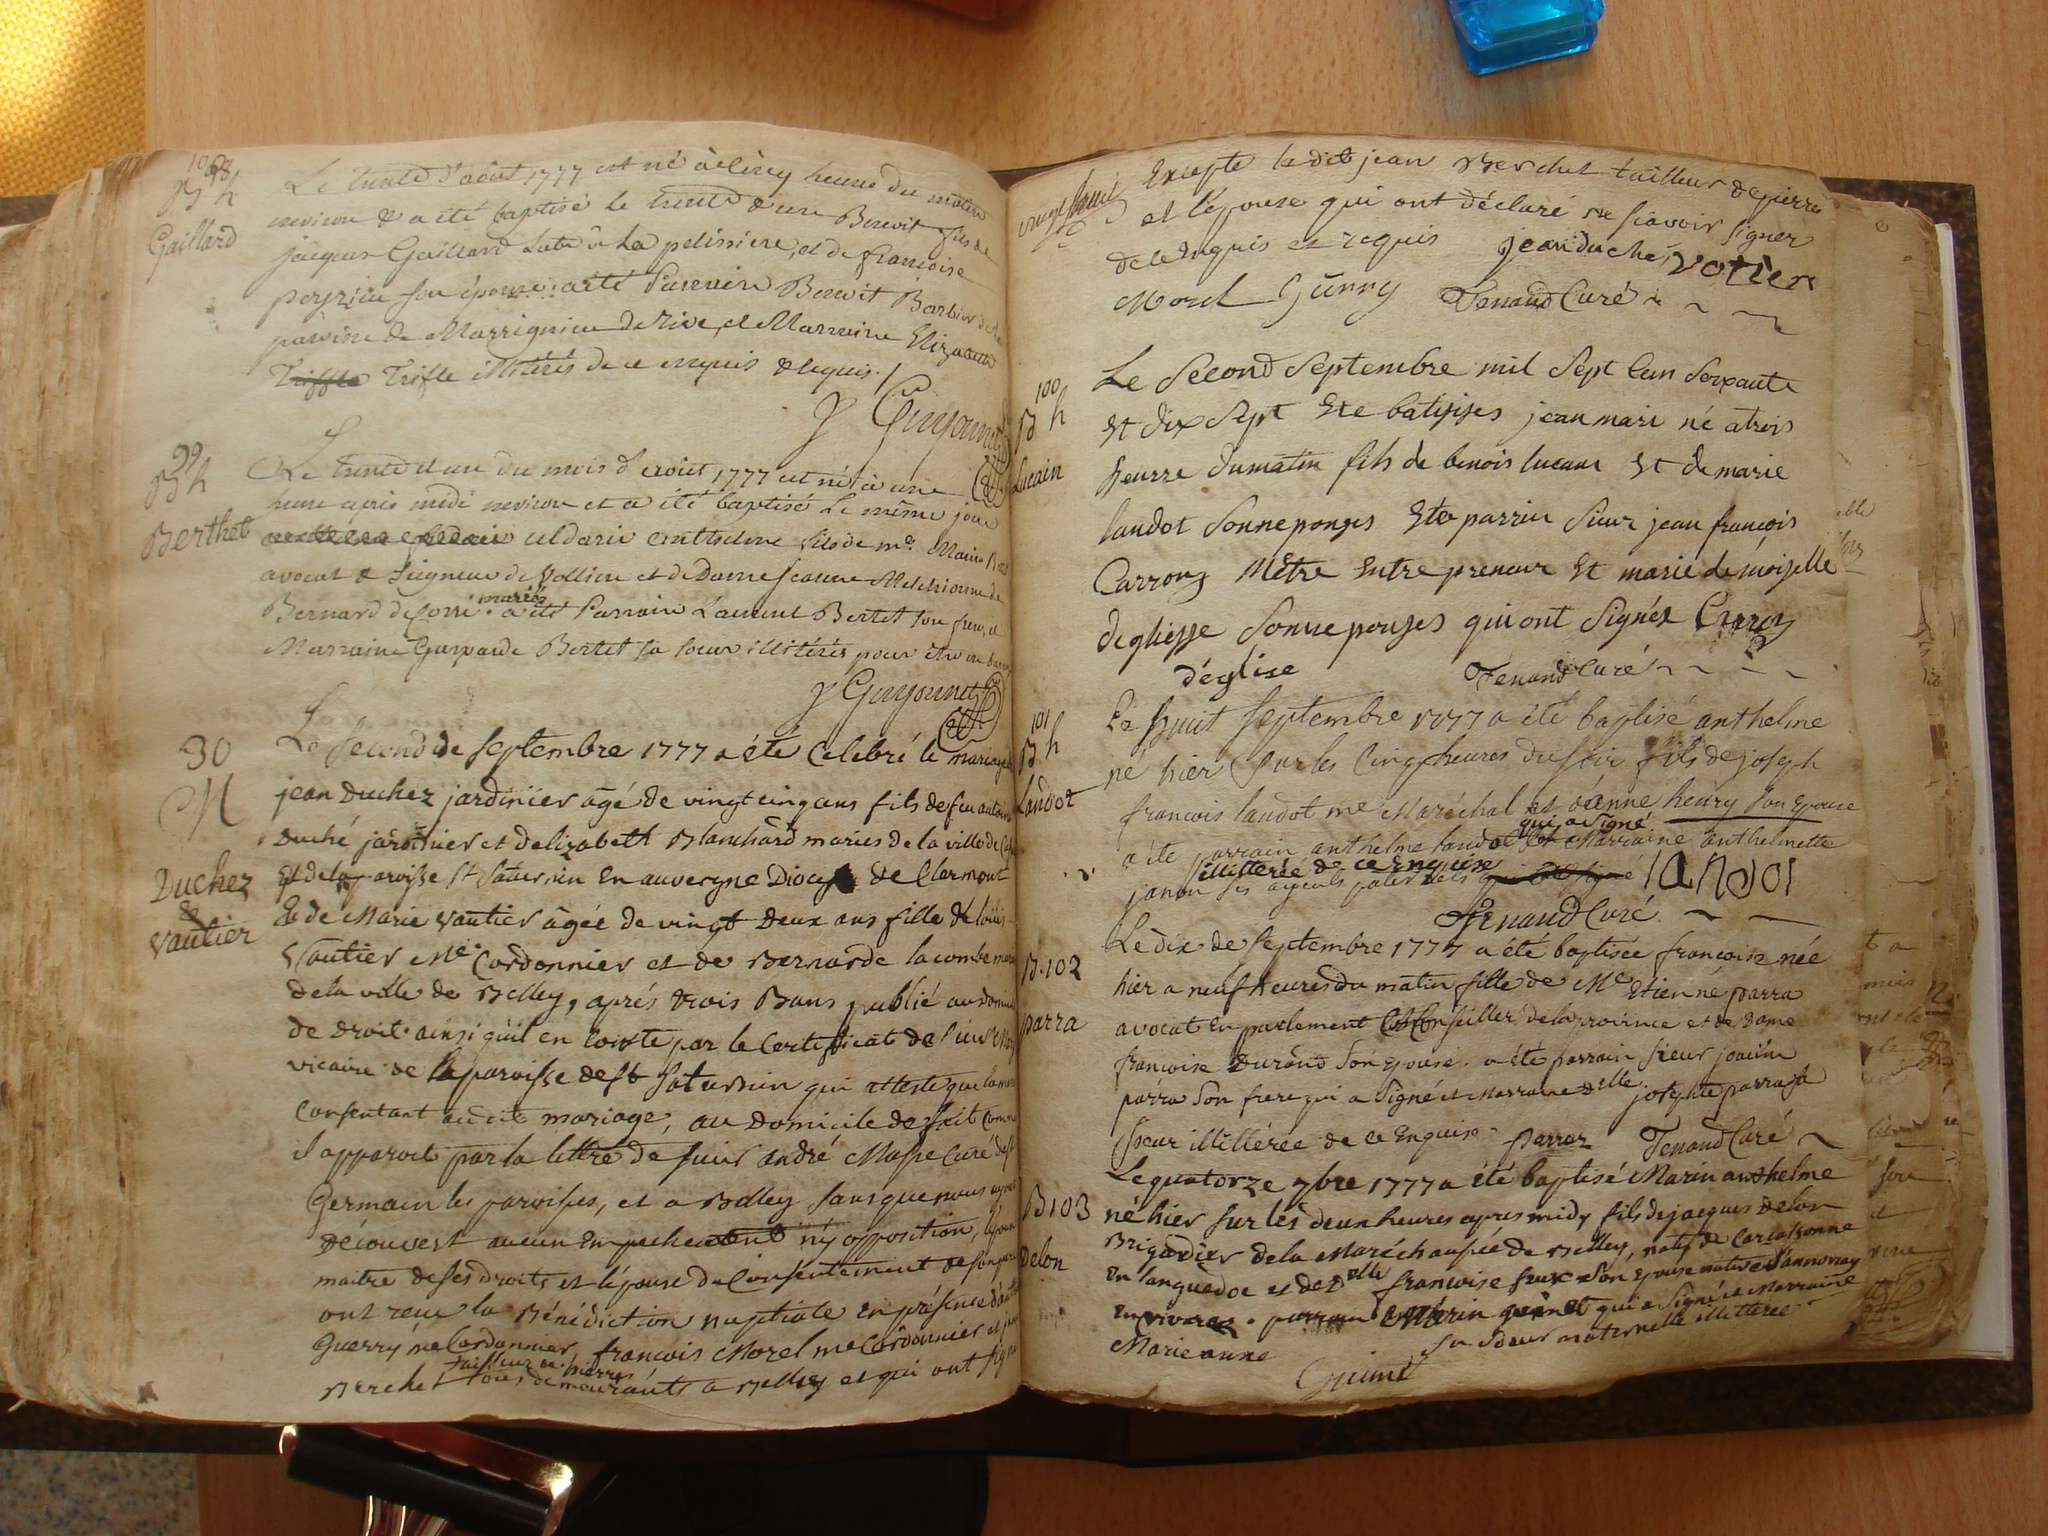 98
B h
Gaillard
Le trente d'août 1777 est né à heure du matin
environ & a été baptisé le trente & un Benoit fils de
jacques Gaillard de la pelissiere, et de francoise
peyzieu son épouse: a été Parrain Benoit Barbier de la
paroisse de Marrignieu de Rive, et Marraine Elizabeth
Trifle Trifle illitérés de ce enquis & requis./
Guyonnet
99
B h
Berthet
Le trente et un du mois d'août 1777 est né à une
heure après midi environ et a été baptisé Le même jour
Anthelme fils de me. Marin
avocat & Seigneur de Vollien et de Dame jeanne Melchionne de
Bernard de mariés a été Parrain Laurent Bertet son frere, et
Marraine Gasparde Bertet sa soeur illitérés pour être en
Guyonnet
30
M
Duchez
&
Vautier
Le second de septembre 1777 a été Celebré le mariage
jean Duchez jardinier âgé de vingt cinq ans fils de feu antoine
Duché jardinier et delizabeth Blanchard mariés de la ville de
Et de la paroisse St Saturnin En auvergne Diocese de Clermont
Et de Marie Vautier âgée de vingt deux ans fille de louis
Vautier Me. Cordonnier et de Bernarde lacombe
de la ville de Belley, aprés trois Bans publié
de Droit. ainsi quil en Conste par le Certificat de Sieur
vicaire de la paroisse de St Saturnin qui atteste que la
Consentant au dit mariage, au Domicile de fait
il apparoit par la lettre de sieur andré Masse Curé de
Germain les paroisses, et a Belley sans que nous ayons
découvert aucun Empechement ny opposition, lépoux
maitre de ses droits et lépouse du Consentement de son pere
ont recu la Bénédiction nuptiale En présence
Guerry me Cordonnier, francois Morel me Cordonnier et
tailleur de pierres
Berchet tous demeurants a Belley et qui ont signé
Excepte le dit jean Berchet tailleur de pierre
et lépouse qui ont déclaré ne scavoir signer
de ce Enquis et requis jean duché, votier
Morel Guerry Tenand Curé
100
B h
Lucain
Le Second Septembre mil Sept Cen Soixante
Et dix Sept Ete batisses jean mari né a trois
heurre du matin fils de benois lucain Et de marie
landot Sonneponges Ete parrin Sieur jean francois
Carronz Métre Entre preneur Et marie démoizelle
degliesse Sonne pouzes qui ont signéz Carroz
déglise Tenand Curé
101
B h
Landot
Le huit septembre 1777 a été baptisé anthelme
né hier sur les Cinq heures du soir fils de joseph
francois landot me Maréchal et anne henry son Epouse
qui a signé
a été parrain anthelme landot et Marraine anthelmette
illitterée de ce Enquise
janon ses ayeuls paternels qui a signé landot
Tenand Curé.
B. 102
parra
Le dix de septembre 1777 a été baptisée francoise née
hier a neuf heures du matin fille de Me Etienne parra
avocat En parlement Conseiller de la province et de dame
francoise Durand son Epouse. a été parrain sieur
parra son frere qui a signé et Marraine Delle. josephte parra sa
soeur illittérée de ce Enquise parra Tenand Curé
B 103
Delon
Le quatorze 7bre 1777 a été baptisé Marin anthelme
né hier sur les deux heures apres midy fils de jacques delon
Brigadier de la Maréchaussée de Belley, natif de Carcassonne
En languedoc et de Delle francoise son Epouse native dannonay
En vivarez. parrain Marin guinet qui a signé et Marraine
Marie anne sa soeur maternelle illitterée
Guinet